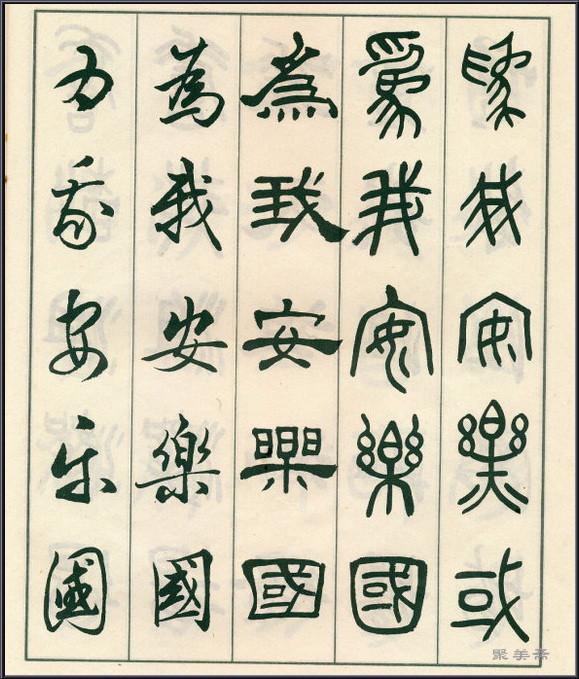 爲我安樂或
爲我安樂國
為我安樂國
為我安樂國
为我安乐國
聚美斋